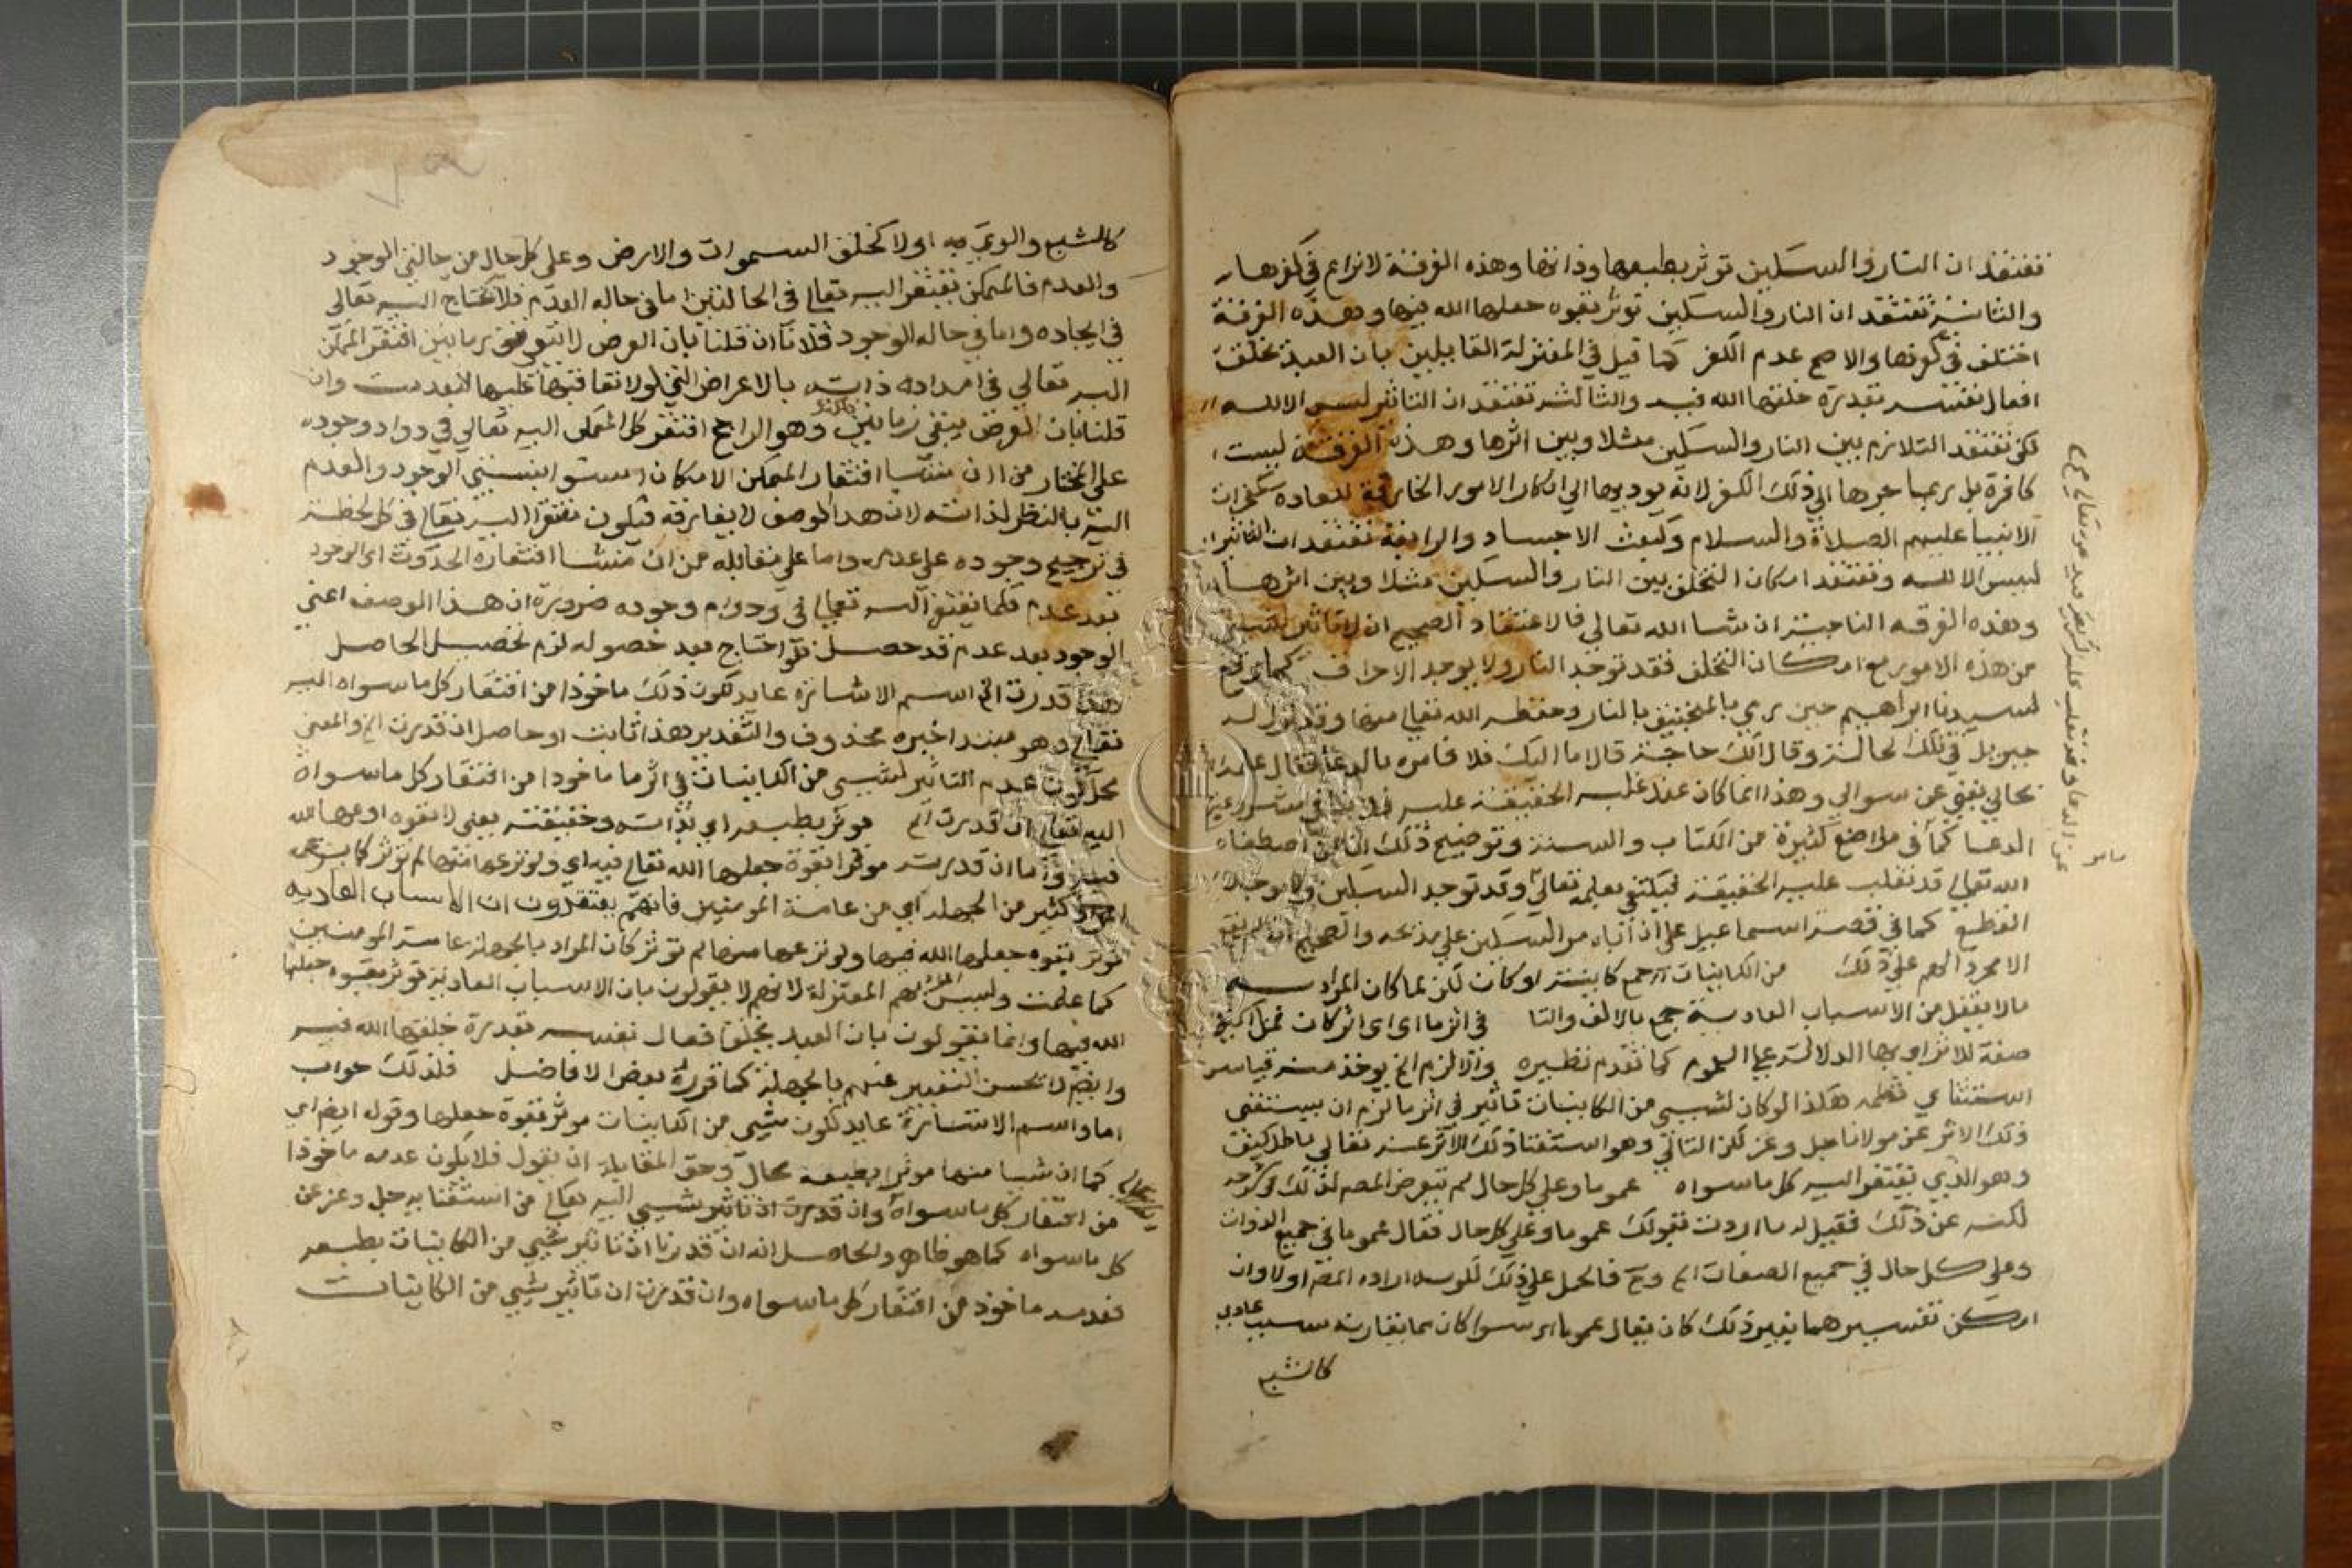 تعتقد ان النار والسكين توثر بطبعها وذاتها وهذه الفرقة لا نزاع في كفرها
والثانية تعتقد ان النار والسكين توثر بقوه جعلها الله فيها وهذه الفرقة
اختلف في كفرها والاصح عدم الكفر كما قيل في المعتزلة القايلين بان العبد يخلق
افعال نفسه بقدرة خلقها الله فيه والثالثة تعتقد ان التاثير ليس الا لله
لكن تعتقد التلازم بين النار والسكين مثلا وبين اثرها وهذه الفرقة ليست
كافرة بل ربما جرها الي ذلك الكفر لانه يوديها الي انكار الامور الخارقة للعاده كمعجزات
الانبيا عليهم الصلاة والسلام وكبعث الاجساد والرابعة تعتقد ان التاثير
ليس الا لله وتعتقد امكان التخلف بين النار والسكين مثلا وبين اثرها
وهذه الفرقه الناجية ان شا الله تعالي فالاعتقاد الصحيح ان لا تاثير لشي
من هذه الامور مع امكان التخلف فقد توجد النار ولا يوجد الاحراق كما وقع
لسيدنا ابراهيم حين رمي بالمنجنيق بالنار وحفظه الله تعالي منها وقد نزل له
جبريل في تلك الحالة وقال الك حاجة قال اما اليك فلا فامره بالدعا فقال علمه
بحالي يغني عن سوالي وهذا انما كان عند غلبه الحقيقة عليه فلا ينافي مشروعية
الدعا كما في مواضع كثيرة من الكتاب والسنة وتوضيح ذلك ان من اصطفاه
الله تعالي قد تغلب عليه الحقيقة فيكتفي بعلمه تعالي وقد توجد السكين ولا يوجد
القطع كما في قصة اسماعيل علي ان اباه مر السكين علي مذبحه والصحيح انه لم يقع
الا مجرد الهم علي ذلك من الكاينات جمع كاينة او كاين لكن لما كان المراد به
ما لا يعقل من الاسباب العادية جمع بالالف والتا في اثر ما اي اي اثر كان فما
صفة للاثر اي بها الدلالة علي العموم كما تقدم نظيره والا لزم الخ يوخذ منه قياس
استثنائي نظمه هكذا لو كان لشي من الكاينات تاثير في اثر ما لزم ان يستغني
ذلك الاثر عن مولانا جل وعز لكن التالي وهو استغنا ذلك الاثر عنه تعالي باطل كيف
وهو الذي يفتقر اليه كل ما سواه عموما وعلي كل حال لم يتعرض المص لذلك في شرحه
لكنه عن ذلك فقيل له ما اردت بقولك عموما وعلي كل حال فقال عموما في جميع الذوات
وعلي كل حال في جميع الصفات الخ وح فالحمل علي ذلك لكونه اراده المص اولا وان
امكن تفسيرهما بغير ذلك كان يقال عموما اي سوا كان مما يقارنه سبب عادي
كالشبع
عن الدعا وقد تغلب عليه
كالشبع والري به او لا كخلق السموات والارض وعلي كل حال من حالتي الوجود
والعدم فالممكن يفتقر اليه تعالي في الحالتين اما في حاله العدم فلاحتاج اليه تعالي
في ايجاده واما في حاله الوجود فلانا ان قلنا بان العرض لا يبقي زمانين افتقر الممكن
اليه تعالي في امداده ذاته بالاعراض التي لولا تعاقبها عليها لانعدمت وان
قلنا بان العرض يبقي زمانين وهو الراجح افتقر كل الممكن اليه تعالي في دوام وجوده
علي المختار من ان منشا افتقار الممكن الامكان استوا نسبتي الوجود والعدم
اليه بالنظر لذاته لان هذا الوصف لا يفارقه فيكون مفتقرا اليه تعالي في كل لحظة
في ترجيح وجوده علي عدمه واما علي مقابله من ان منشا افتقاره الحدوث اي الوجود
بعد عدم فكما يفتقر اليه تعالي في دوام وجوده ضرورة ان هذا الوصف اعني
الوجود بعد عدم قد حصل فلو احتاج بعد حصوله لزم تحصيل الحاصل
هذا ان قدرت الخ اسم الاشارة عايد لكون ذلك ماخوذا من افتقار كل ما سواه اليه
تعالي وهو مبتدا خبره محذوف والتقدير هذا ثابت او حاصل ان قدرت الخ والمعني
محل كون عدم التاثير لشي من الكاينات في اثر ما ماخوذا من افتقار كل ما سواه
اليه تعالي ان قدرت الخ موثر بطبعه اي بذاته وحقيقته يعني لا بقوه اودعها الله
فيه واما ان قدرت موثرا بقوة جعلها الله تعالي فيه اي ولو نزعها منها لم توثر كما يزعمه
كثير من الجهله اي من عامة المومنين فانهم يعتقدون ان الاسباب العاديه
توثر بقوه جعلها الله فيها ولو نزعها منها لم توثر كان المراد بالجهلة عامة المومنين
كما علمت وليس المراد بهم المعتزلة لانهم لا يقولون بان الاسباب العادية توثر بقوه جعلها
الله فيها وانما يقولون بان العبد يخلق افعال نفسه بقدرة خلقها الله فيه
وايضا لا يحسن التعبير عنهم بالجهلة كما قرره بعض الافاضل فلذلك جواب
اما واسم الاشارة عايد لكون شي من الكاينات موثر بقوة جعلها وقوله ايضا اي
كما ان شيا منها موثرا بطبعه محال وحق المقابلة ان يقول فلا يكون عدمه ماخوذا
من افتقار كل ما سواه وان قدرت ان تاثير شي اليه تعالي من استغنايه جل وعز عن
كل ما سواه كما هو ظاهر والحاصل انه ان قدرنا ان تاثير شي من الكاينات بطبعه
فعدمه ماخوذ من افتقار كل ما سواه وان قدرت ان تاثير شي من الكاينات